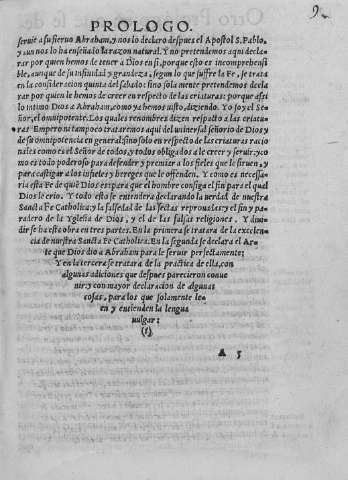 9
PROLOGO.
seruir a su sieruo Abraham, y nos lo declaro despues el Apostol S. Pablo,
y aun nos lo ha enseñado la razon natural. Y no pretendemos aqui decla-
rar por quien hemos de tener a Dios en si, porque esto es incomprehensi
ble, aunque de su infinidad y grandeza, segun lo que suffre la Fe, se trata
en la consideracion quinta del sabado: sino solamente pretendemos decla
rar por quien le hemos de creer en respecto de las criaturas: porque assi
lo intimo Dios a Abraham, como ya hemos visto, diziendo. Yo soy el Se-
ñor, el omnipotente. Los quales renombres dizen respecto a las criatu-
ras Empero ni tampoco trataremos aqui del vniuersal señorio de Dios y
de su omnipotencia en general: sino solo en respecto de las criaturas racio
nales como es el Señor de todos, y todos obligados a le creer y seruir: y co
mo es todo poderoso para defender y premiar a los fieles que le siruen, y
para castigar a los infieles y hereges que le offenden. Y como es necessa-
ria esta Fe de que Dios espara que el hombre consiga el fin para el qual
Dios le crio. Y todo esto se entendera declarando la verdad de nuestra
Sancta Fe Catholica: y la falsedad de las sectas reprouadas: y el fin y pa-
radero de la Yglesia de Dios, y el de las falsas religiones. Y diui-
dir se ha esta obra en tres partes. En la primera se tratara de la excelen-
cia de nuestra Sancta Fe Catholica. En la segunda se declara el Ar-
te que Dios dio a Abraham para le seruir perfectamente:
Y en la tercera se tratara de la practica de ella, con
algunas adiciones que despues parecieron conue
nir: y con mayor declaracion de algunas
cosas, para los que solamente le-
en y entienden la lengua
vulgar:
(?)
A 5